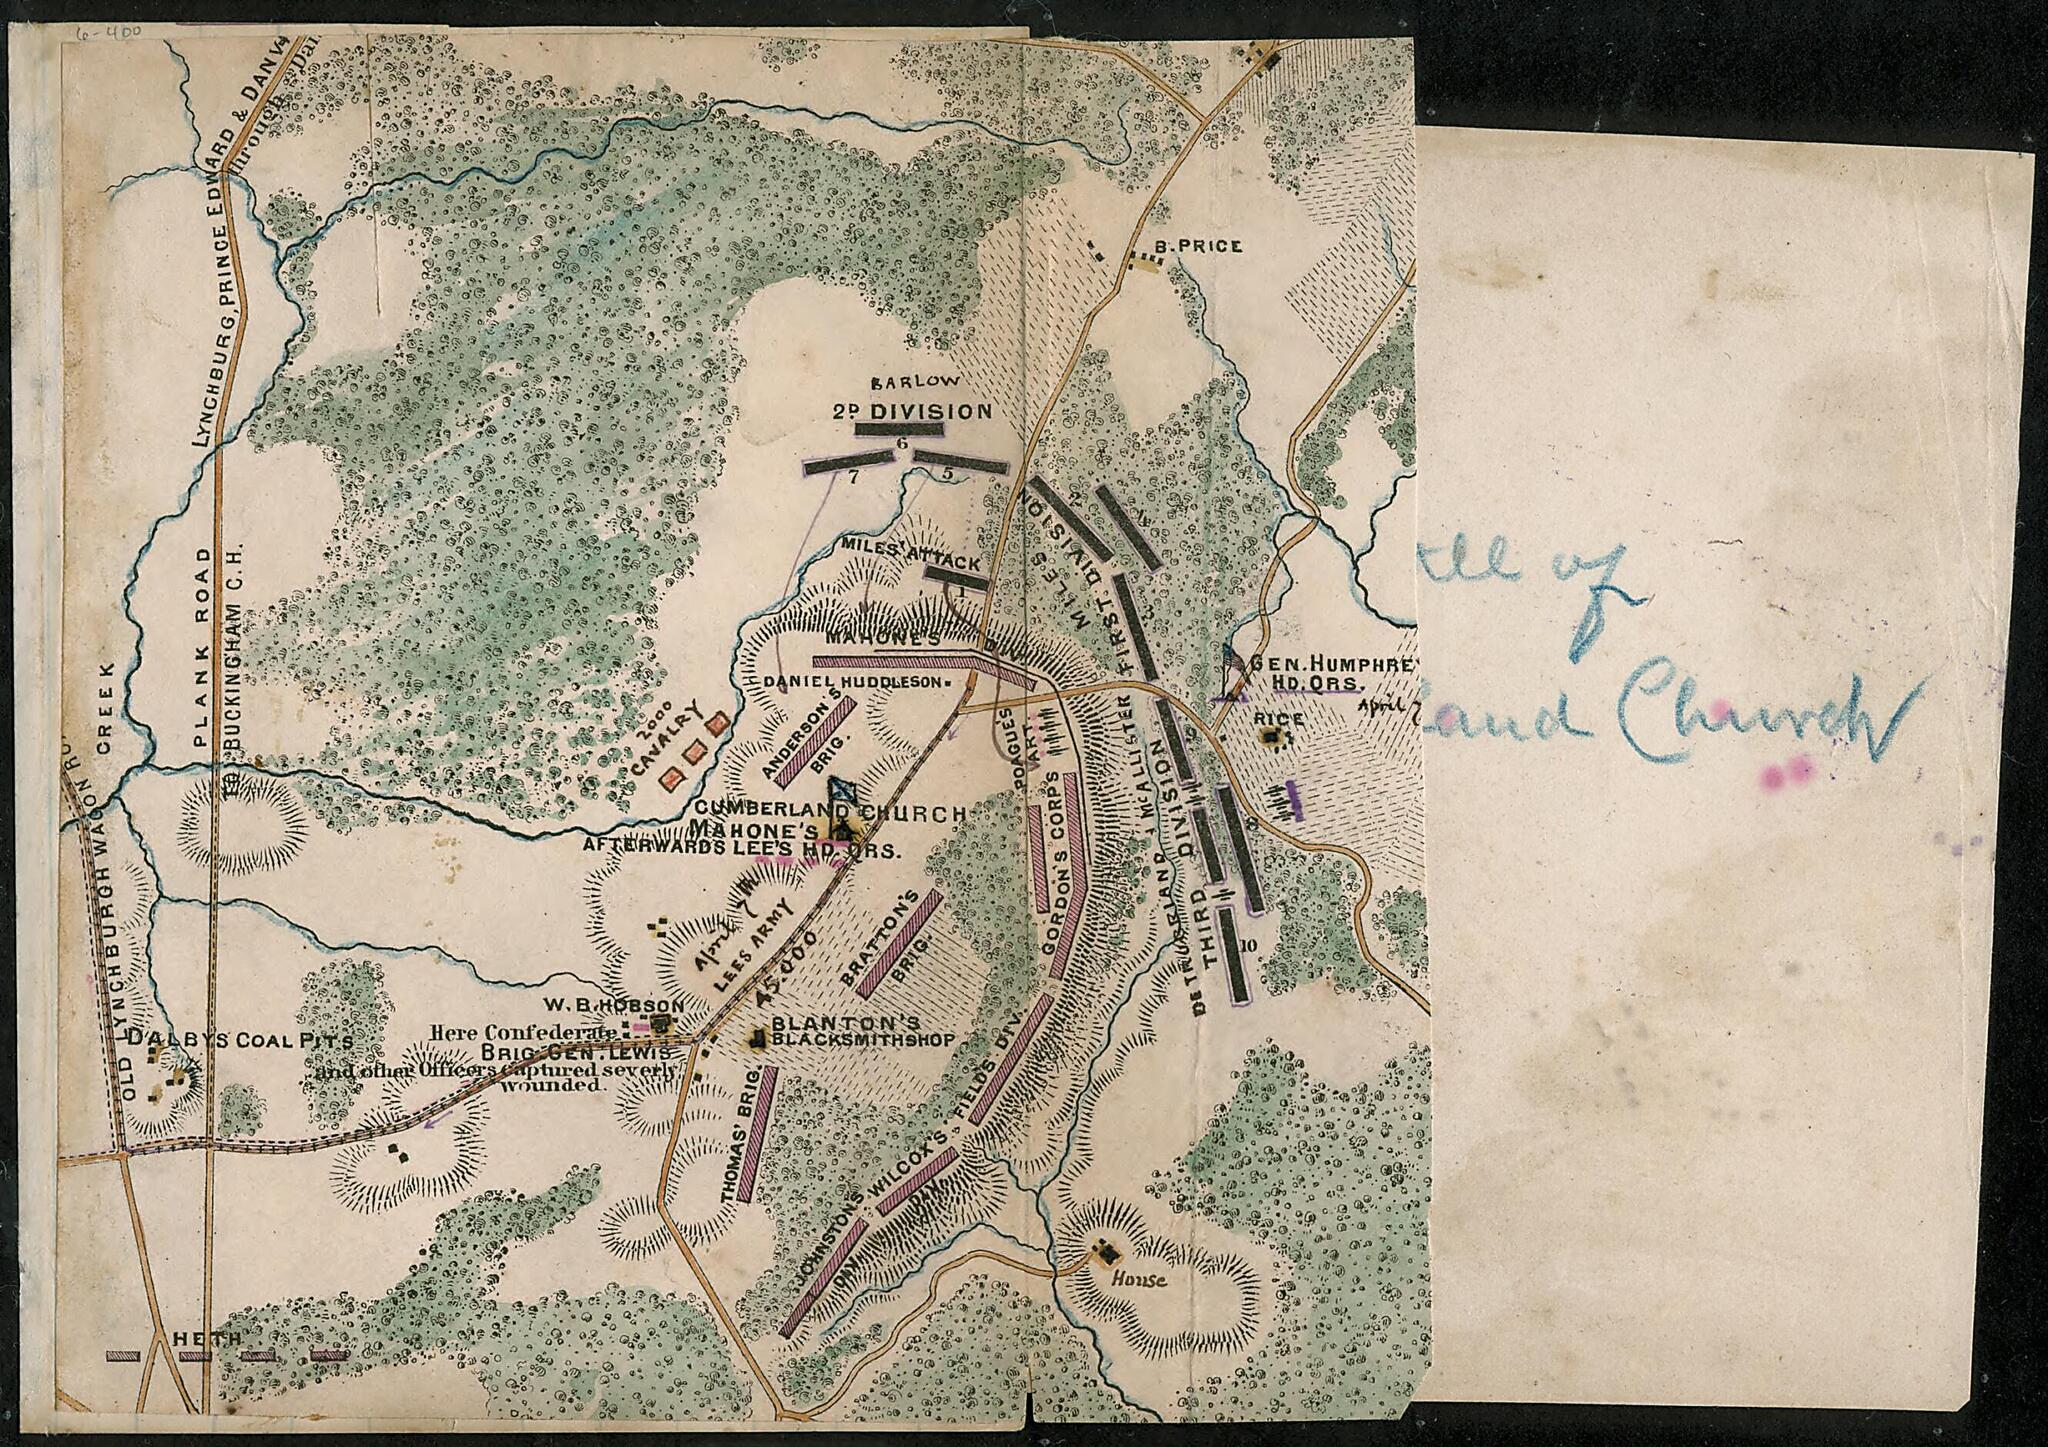 6-400
LYNCHBURG, PRINCE EDWARD & DANV
through Dan
PLANK ROAD
TO BUCKINGHAM C.H.
CREEK
OLD LYNCHBURGH WAGON RO
B. PRICE
BARLOW
2D DIVISION
6
7
5
MILES' ATTACK
1
MILES
FIRST DIVISION
2
3
4
MAHONE'S DIV.
DANIEL HUDDLESON
ANDERSON'S
BRIG.
2000
CAVALRY
POAGUES
ART.
GEN. HUMPHRE
HD. QRS.
April 7
RICE
CUMBERLAND CHURCH
MAHONE'S
AFTERWARDS LEE'S HD. QRS.
McALLISTER
DETRU
THIRD DIVISION
8
10
GORDON'S CORPS
April 7th
LEES ARMY
45.000
BRATTON'S
BRIG.
W. B. HOBSON
Here Confederate
BRIG. GEN. LEWIS
and other Officers captured severly
wounded.
BLANTON'S
BLACKSMITHSHOP
DALBYS COAL PITS
FIELD'S DIV.
THOMAS' BRIG.
WILCOX'S
DIV.
JOHNSTON'S
DIV.
House
HETH
ttle of
land Church